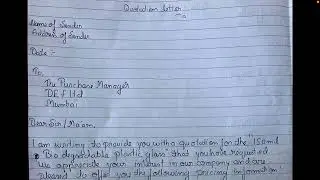 Quotation letter
Name of Sender
Address of Sender
Date :-
To,
The Purchase Manager
DEf Ltd
Mumbai
Dear Sir / Ma'am,
I am writing to provide you with a quotation for the 150ml
Bio degradable plastic glass" that you have requested
We appreciate your interest in our company and are
pleased to offer you the following pricing information